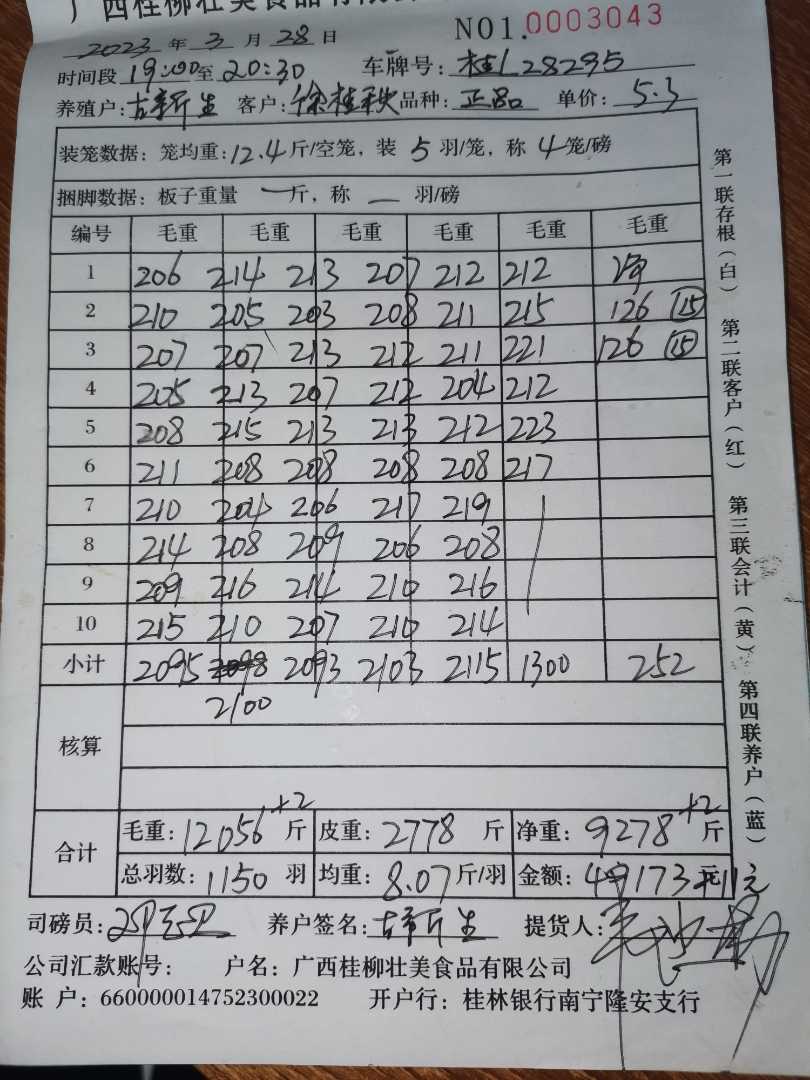 广西桂柳壮美食品有限公
2023年3月28日 NO1.0003043
时间段19:00至20:30 车牌号:桂L28295
养殖户:古新生 客户:徐桂秋 品种:正品 单价:5.3
装笼数据:笼均重:12.4斤/空笼,装5羽/笼,称4笼/磅
捆脚数据:板子重量 一斤,称 一 羽/磅
编号 毛重 毛重 毛重 毛重 毛重 毛重
1 206 214 213 207 212 212 净
2 210 205 203 208 211 215 126 ⑮
3 207 207 213 212 211 221 126 ⑮
4 205 213 207 212 204 212
5 208 215 213 213 212 223
6 211 208 208 208 208 217
7 210 204 206 217 219
8 214 208 209 206 208
9 209 216 214 210 216
10 215 210 207 210 214
小计 2095 2098 2093 2103 2115 1300 252
2100
核算
合计 毛重:12056+2斤 皮重:2778斤 净重:9278+2斤
总羽数:1150羽 均重:8.07斤/羽 金额:49173元+11元
司磅员: 养户签名:古新生 提货人:
公司汇款账号: 户名:广西桂柳壮美食品有限公司
账 户:660000014752300022 开户行:桂林银行南宁隆安支行
第一联存根(白) 第二联客户(红) 第三联会计(黄) 第四联养户(蓝)